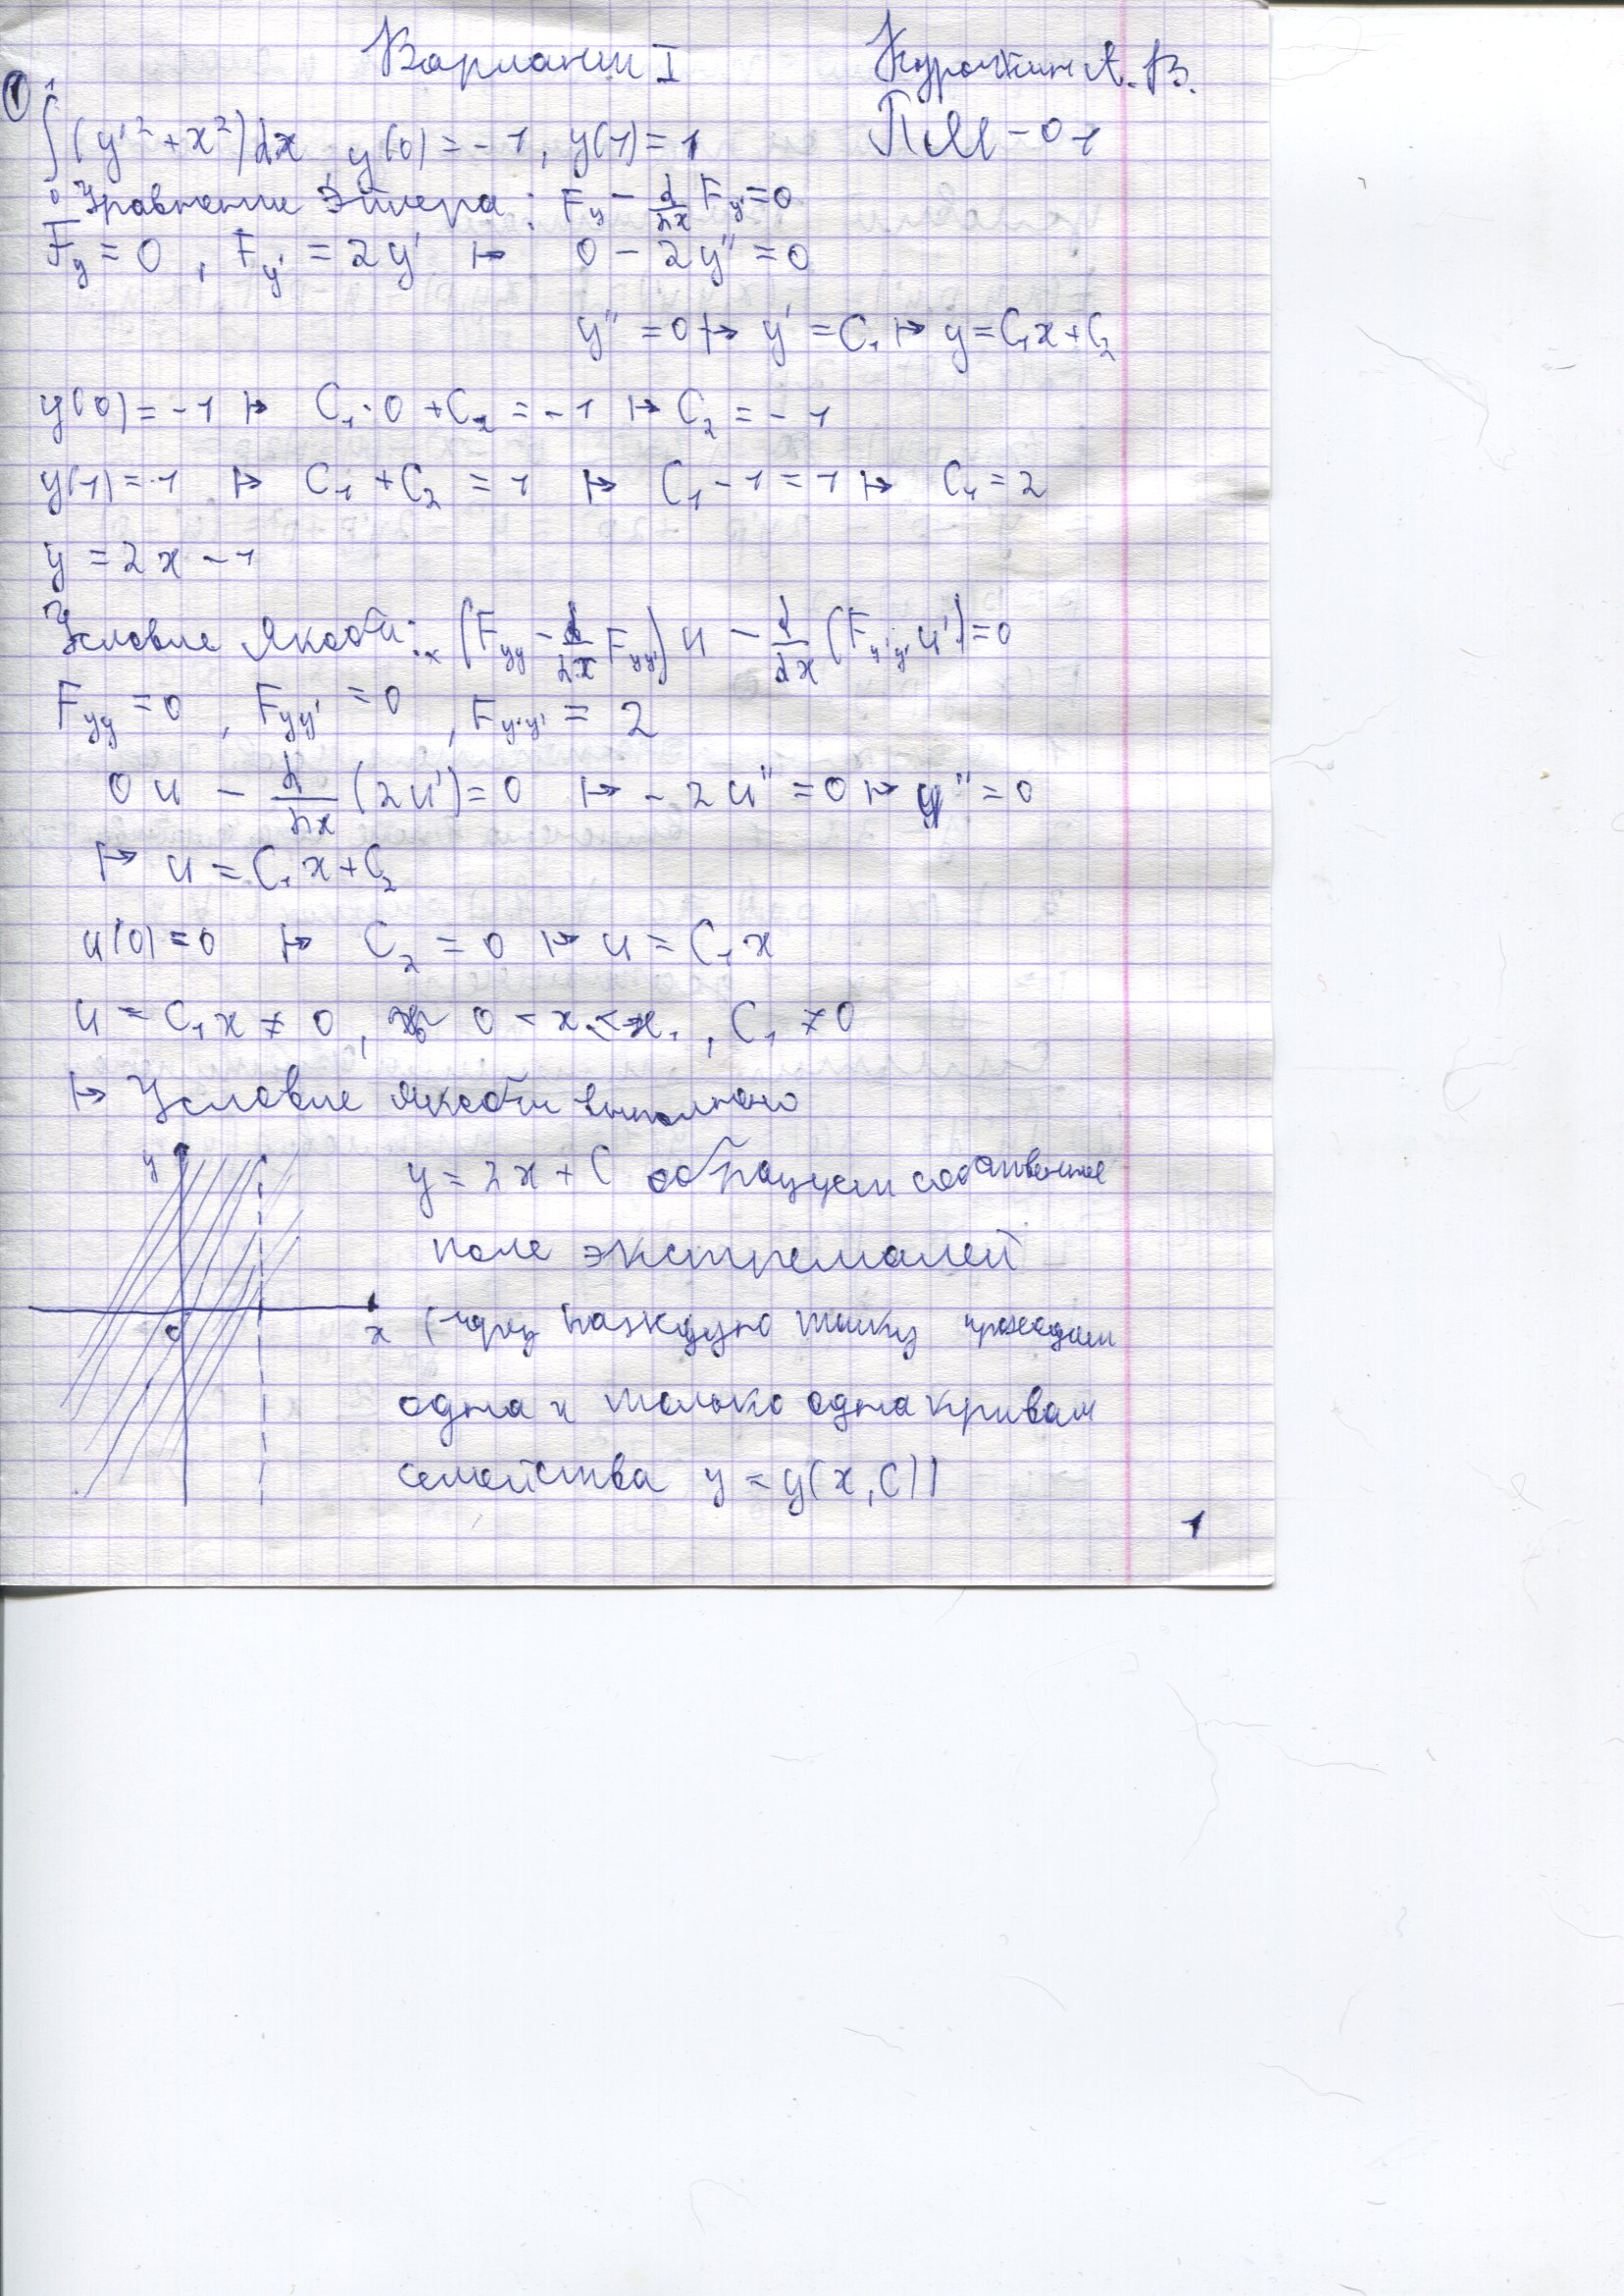 Вариант I
Курочкин А. В.
ПМ - 01
① ∫₀¹ (y'² + x²) dx y(0) = -1, y(1) = 1
Уравнение Эйлера: F_y - d/dx F_y' = 0
F_y = 0, F_y' = 2y' ↦ 0 - 2y'' = 0
y'' = 0 ↦ y' = C₁ ↦ y = C₁x + C₂
y(0) = -1 ↦ C₁·0 + C₂ = -1 ↦ C₂ = -1
y(1) = 1 ↦ C₁ + C₂ = 1 ↦ C₁ - 1 = 1 ↦ C₁ = 2
y = 2x - 1
Условие Якоби: (F_yy - d/dx F_yy') u - d/dx (F_y'y' u') = 0
F_yy = 0, F_yy' = 0, F_y'y' = 2
0 u - d/dx (2u') = 0 ↦ -2u'' = 0 ↦ u'' = 0
↦ u = C₁x + C₂
u(0) = 0 ↦ C₂ = 0 ↦ u = C₁x
u = C₁x ≠ 0, 0 < x < x₁, C₁ ≠ 0
↦ Условие Якоби выполнено
y
0
x
y = 2x + C образует собственное
поле экстремалей
(через каждую точку проходит
одна и только одна кривая
семейства y = y(x, C))
1